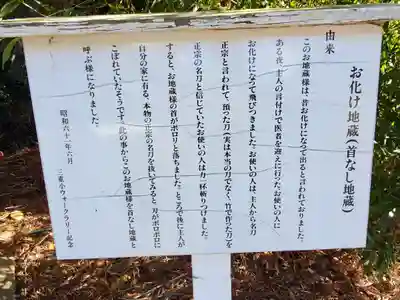 お化け地蔵(首なし地蔵)
由来
このお地蔵様は、昔お化けになって出ると言われておりました。
ある夜、主人の言付けで医者を迎えに行ったお使いの人に
お化けになって飛びつきました。お使いの人は、主人から名刀
正宗と言われて、預った刀(実は本当の刀でなく、竹で作った刀)を
正宗の名刀と信じていたお使いの人は力一杯斬りつけました。
すると、お地蔵様の首がポロリと落ちました。ところで後に主人が
自分の家に有る、本物の正宗の名刀を抜いてみると、刃がボロボロに
こぼれていたそうです。此の事からこのお地蔵様を首なし地蔵と
呼ぶ様になりました。
昭和六十一年六月
三重小ウォークラリー記念